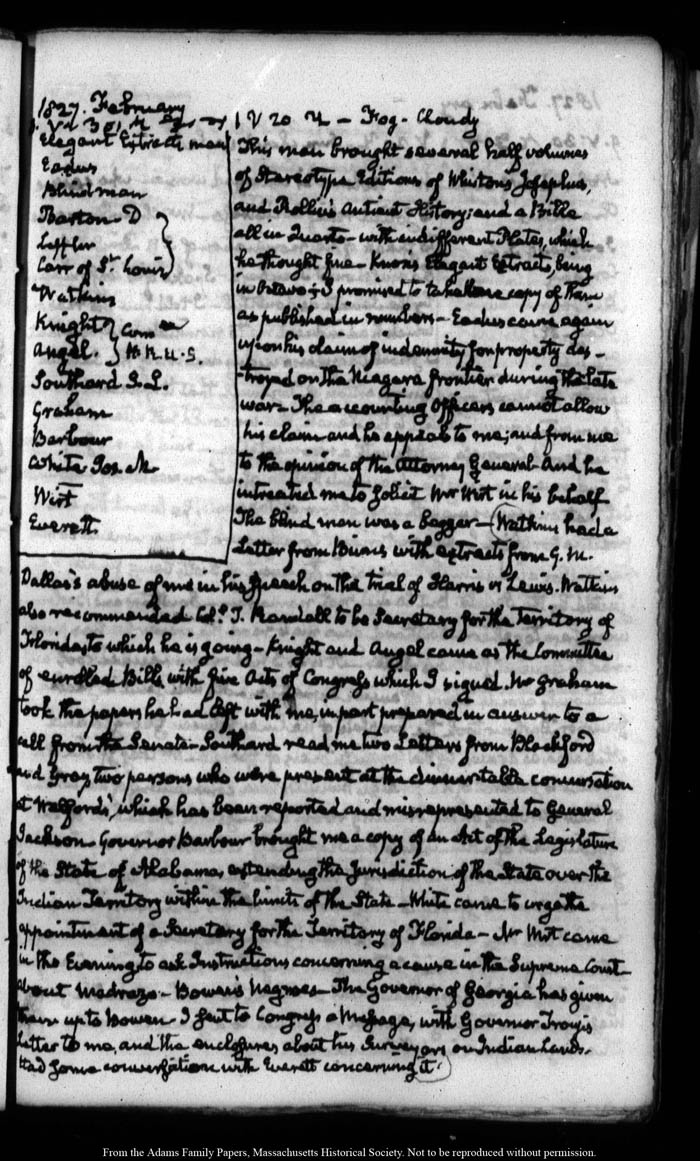 1827. February
V 20 — Fog - Cloudy
Elegant Extracts man
Eadus
Blind man
Barton D
Leffler
Carr of St. Louis
Watkins
Knight Com ee
Angel. H.R.U.S.
Southard S.L.
Graham
Barbour
White Jos. M.
Wirt
Everett.
This man brought several half volumes
of Stereotype Editions of Whiston's Josephus,
and Rollin's Antient History; and a Bible
all in Quarto - with indifferent Plates, which
he thought fine - Knox's Elegant Extracts, being
in Octavo; I promised to take one copy of them
as published in numbers - Eadus came again
upon his claim of indemnity for property des-
troyed on the Niagara frontier during the late
war. The accounting Officers cannot allow
his claim and he appeals to me; and from me
to the opinion of the Attorney General - And he
intreated me to solicit Mr Wirt in his behalf
The blind man was a beggar - Watkins had a
Letter from Binns with extracts from G. M.
Dallas's abuse of me in his Speech on the trial of Harris vs Lewis. Watkins
also recommended Col. T. Randall to be Secretary for the Territory of
Florida, to which he is going - Knight and Angel came as the Committee
of enrolled Bills, with five Acts of Congress which I signed. Mr Graham
took the papers he had left with me, in part prepared in answer to a
call from the Senate - Southard read me two Letters from Blackford
and Gray, two persons who were present at the dinner-table conversation
at Welford's, which has been reported and misrepresented to General
Jackson. Governor Barbour brought me a copy of an Act of the Legislature
of the State of Alabama, extending the Jurisdiction of the State over the
Indian Territory within the limits of the State - White came to urge the
appointment of a Secretary for the Territory of Florida - Mr Wirt came
in the Evening to ask Instructions concerning a cause in the Supreme Court
about Madrazo - Bowen's Negroes - The Governor of Georgia has given
them up to Bowen. I sent to Congress a Message, with Governor Troup's
Letter to me, and the enclosures about his Surveyors on Indian Lands.
Had some conversation with Everett concerning it.
From the Adams Family Papers, Massachusetts Historical Society. Not to be reproduced without permission.